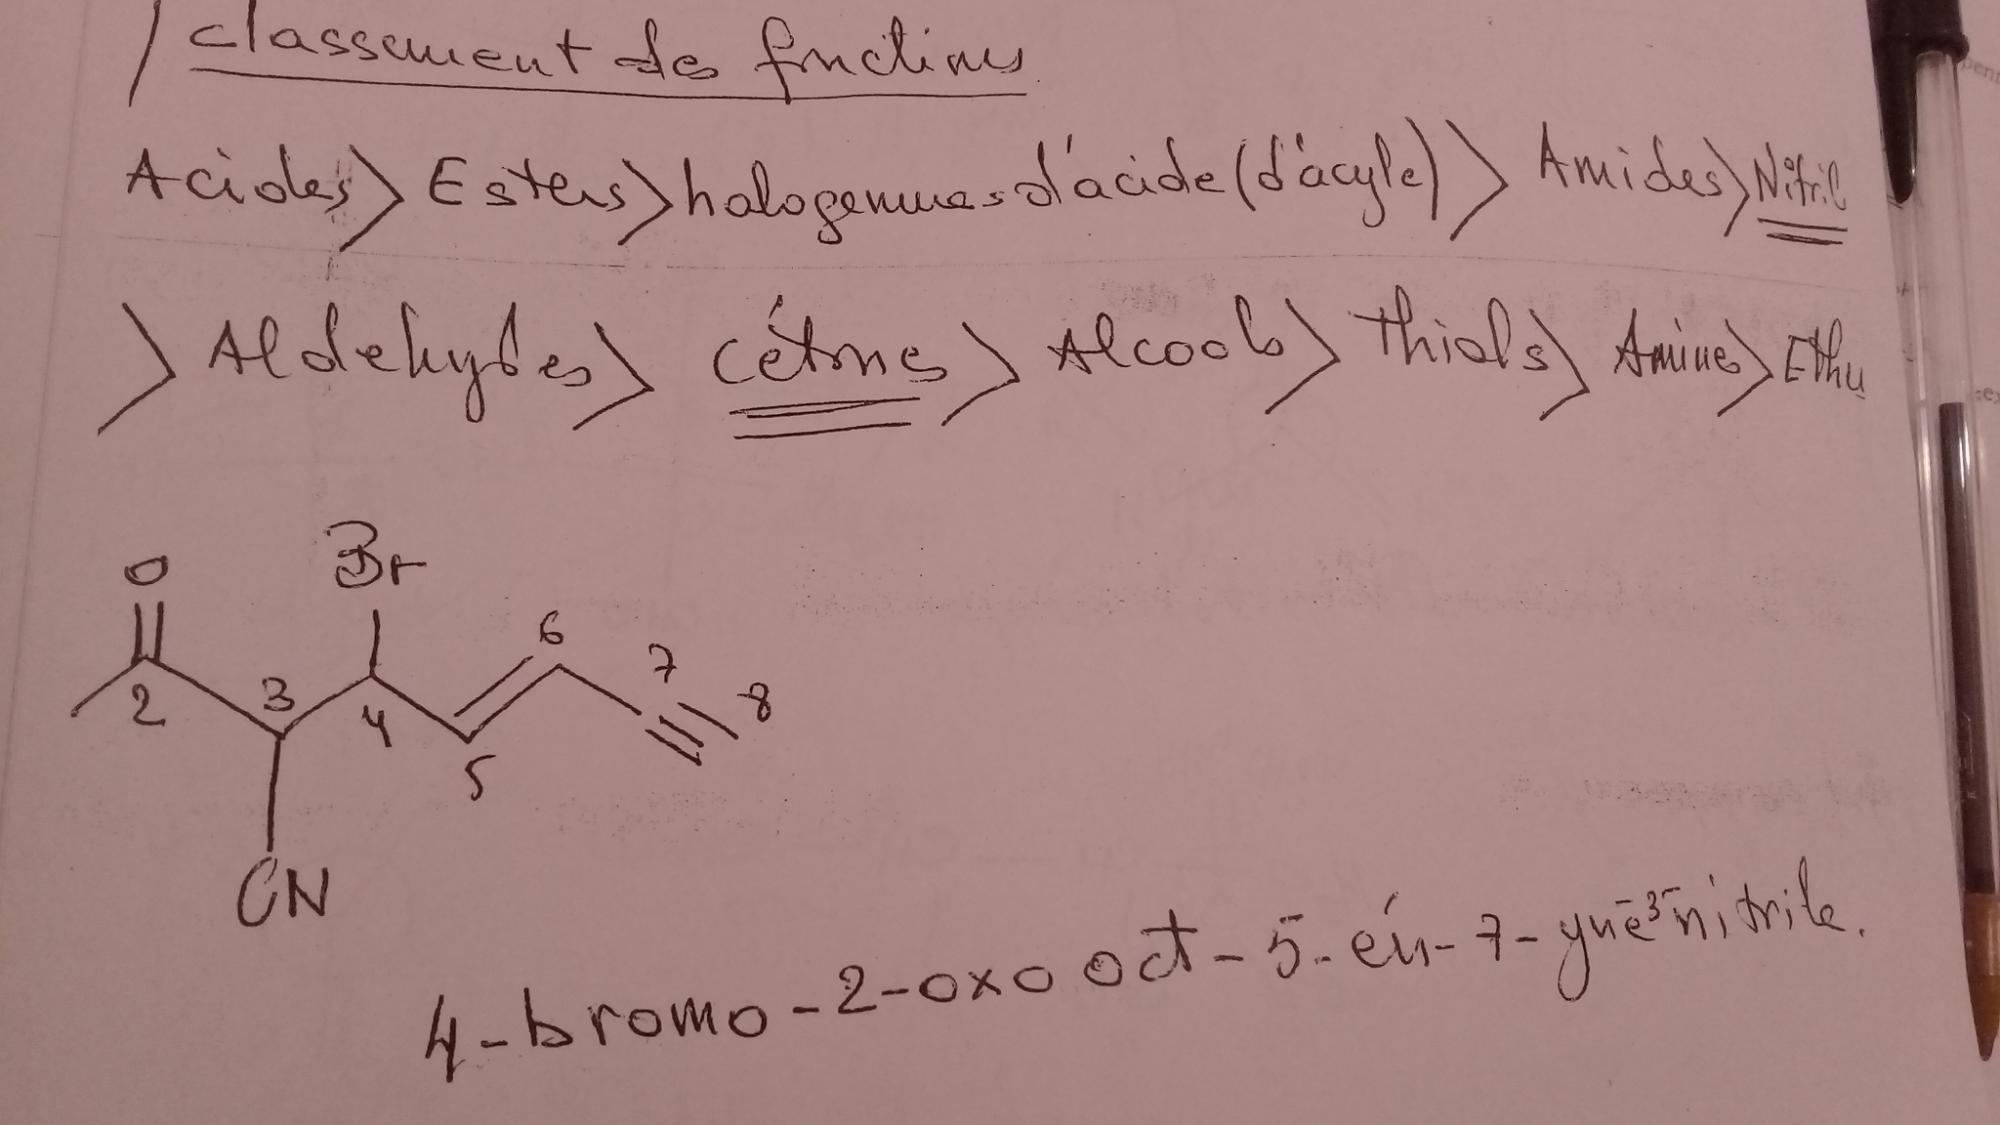 / classement des fonctions
Acides > Esters > halogenures d'acide (d'acyle) > Amides > Nitril
> Aldehydes > cétones > Alcools > thiols > Amines > Ethe
O
Br
2 3 4 5 6 7 8
CN
4-bromo-2-oxo oct-5-én-7-yne-3-nitrile.